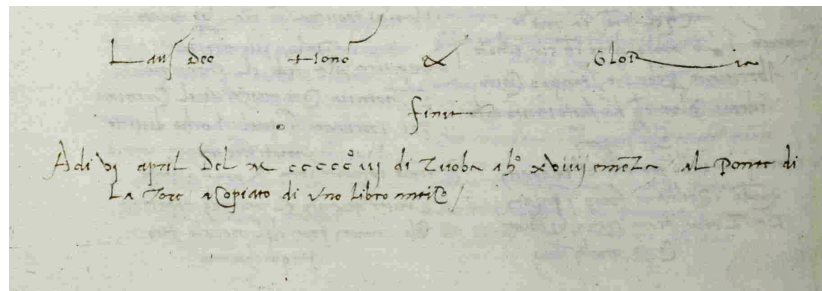 Laus Deo Honor & Gloria
finis
Adi vj april Del M ccccc° iij di Zuoba a h° xviiij e meza al Ponte di
La Tore a Copiato di Uno libro antico /